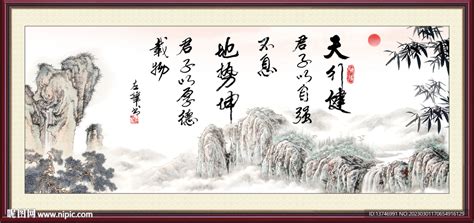 天行健
君子以自强
不息
地势坤
君子以厚德
载物
昵图网
www.nipic.com
ID:13746991 NO:20230301170654916129